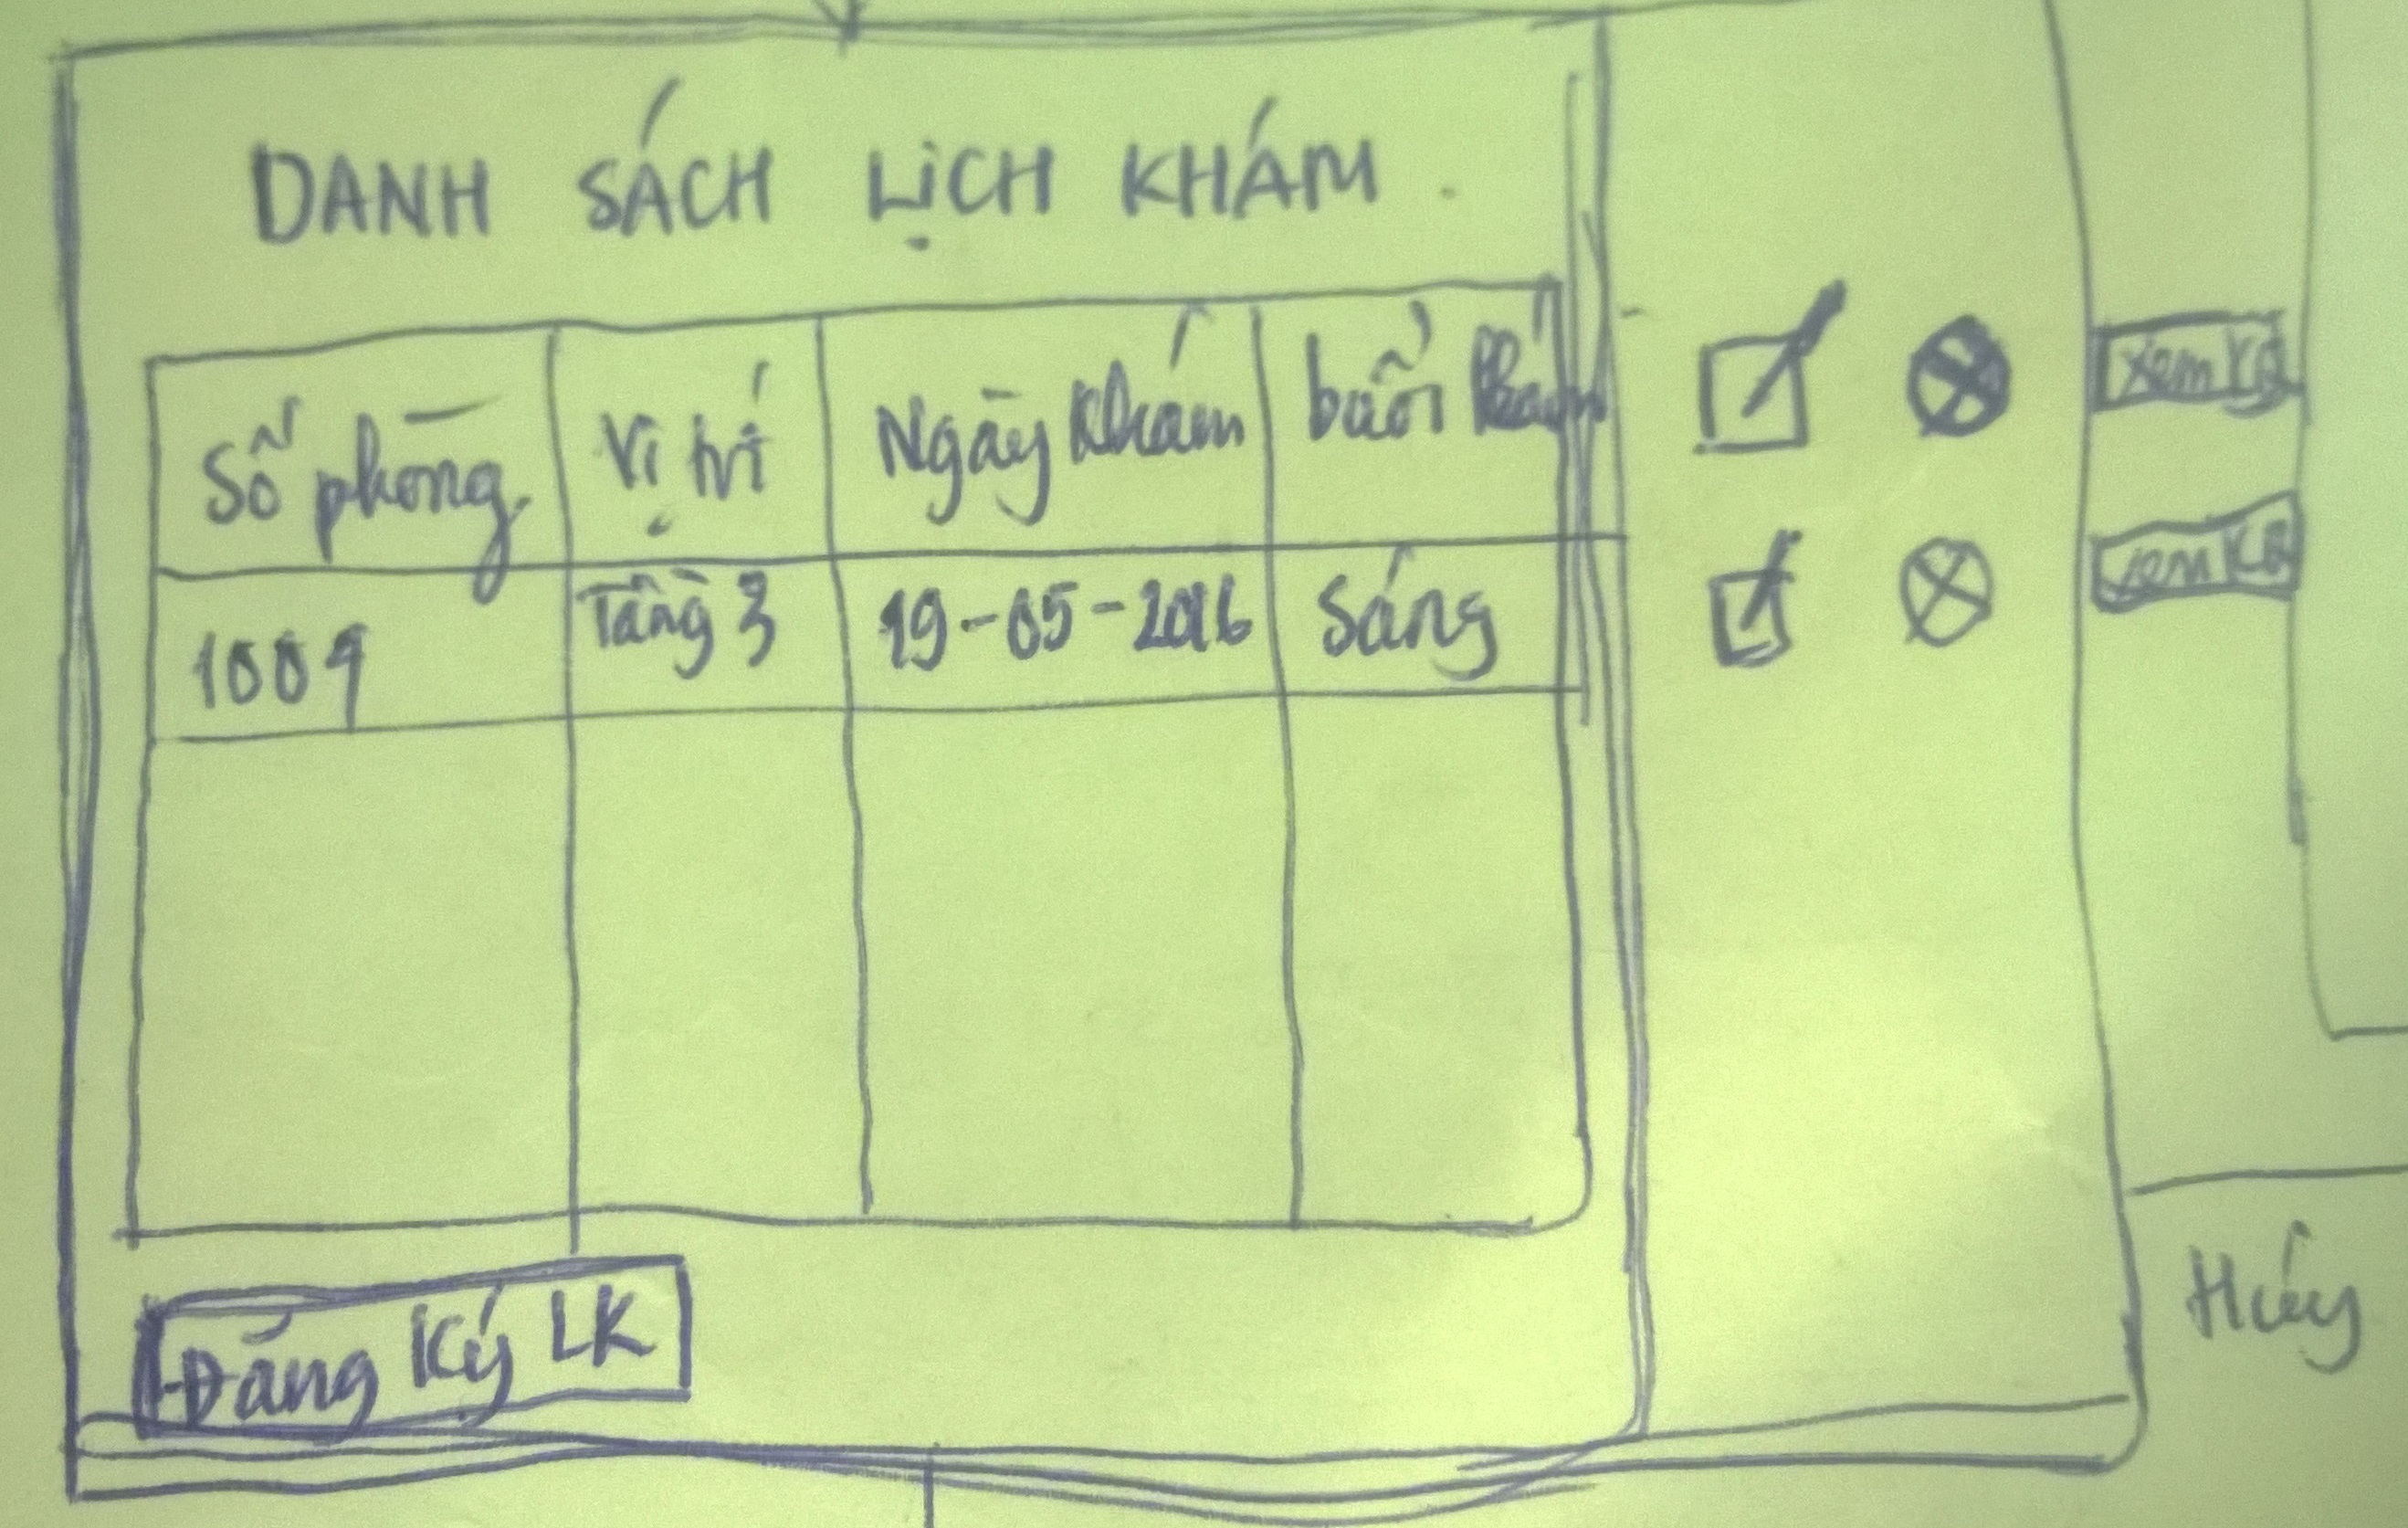 DANH SÁCH LỊCH KHÁM.
Số phòng Vị trí Ngày Khám buổi khám
xem KQ
1009 Tầng 3 19-05-2016 Sáng
xem KQ
Đăng Ký LK
Hủy